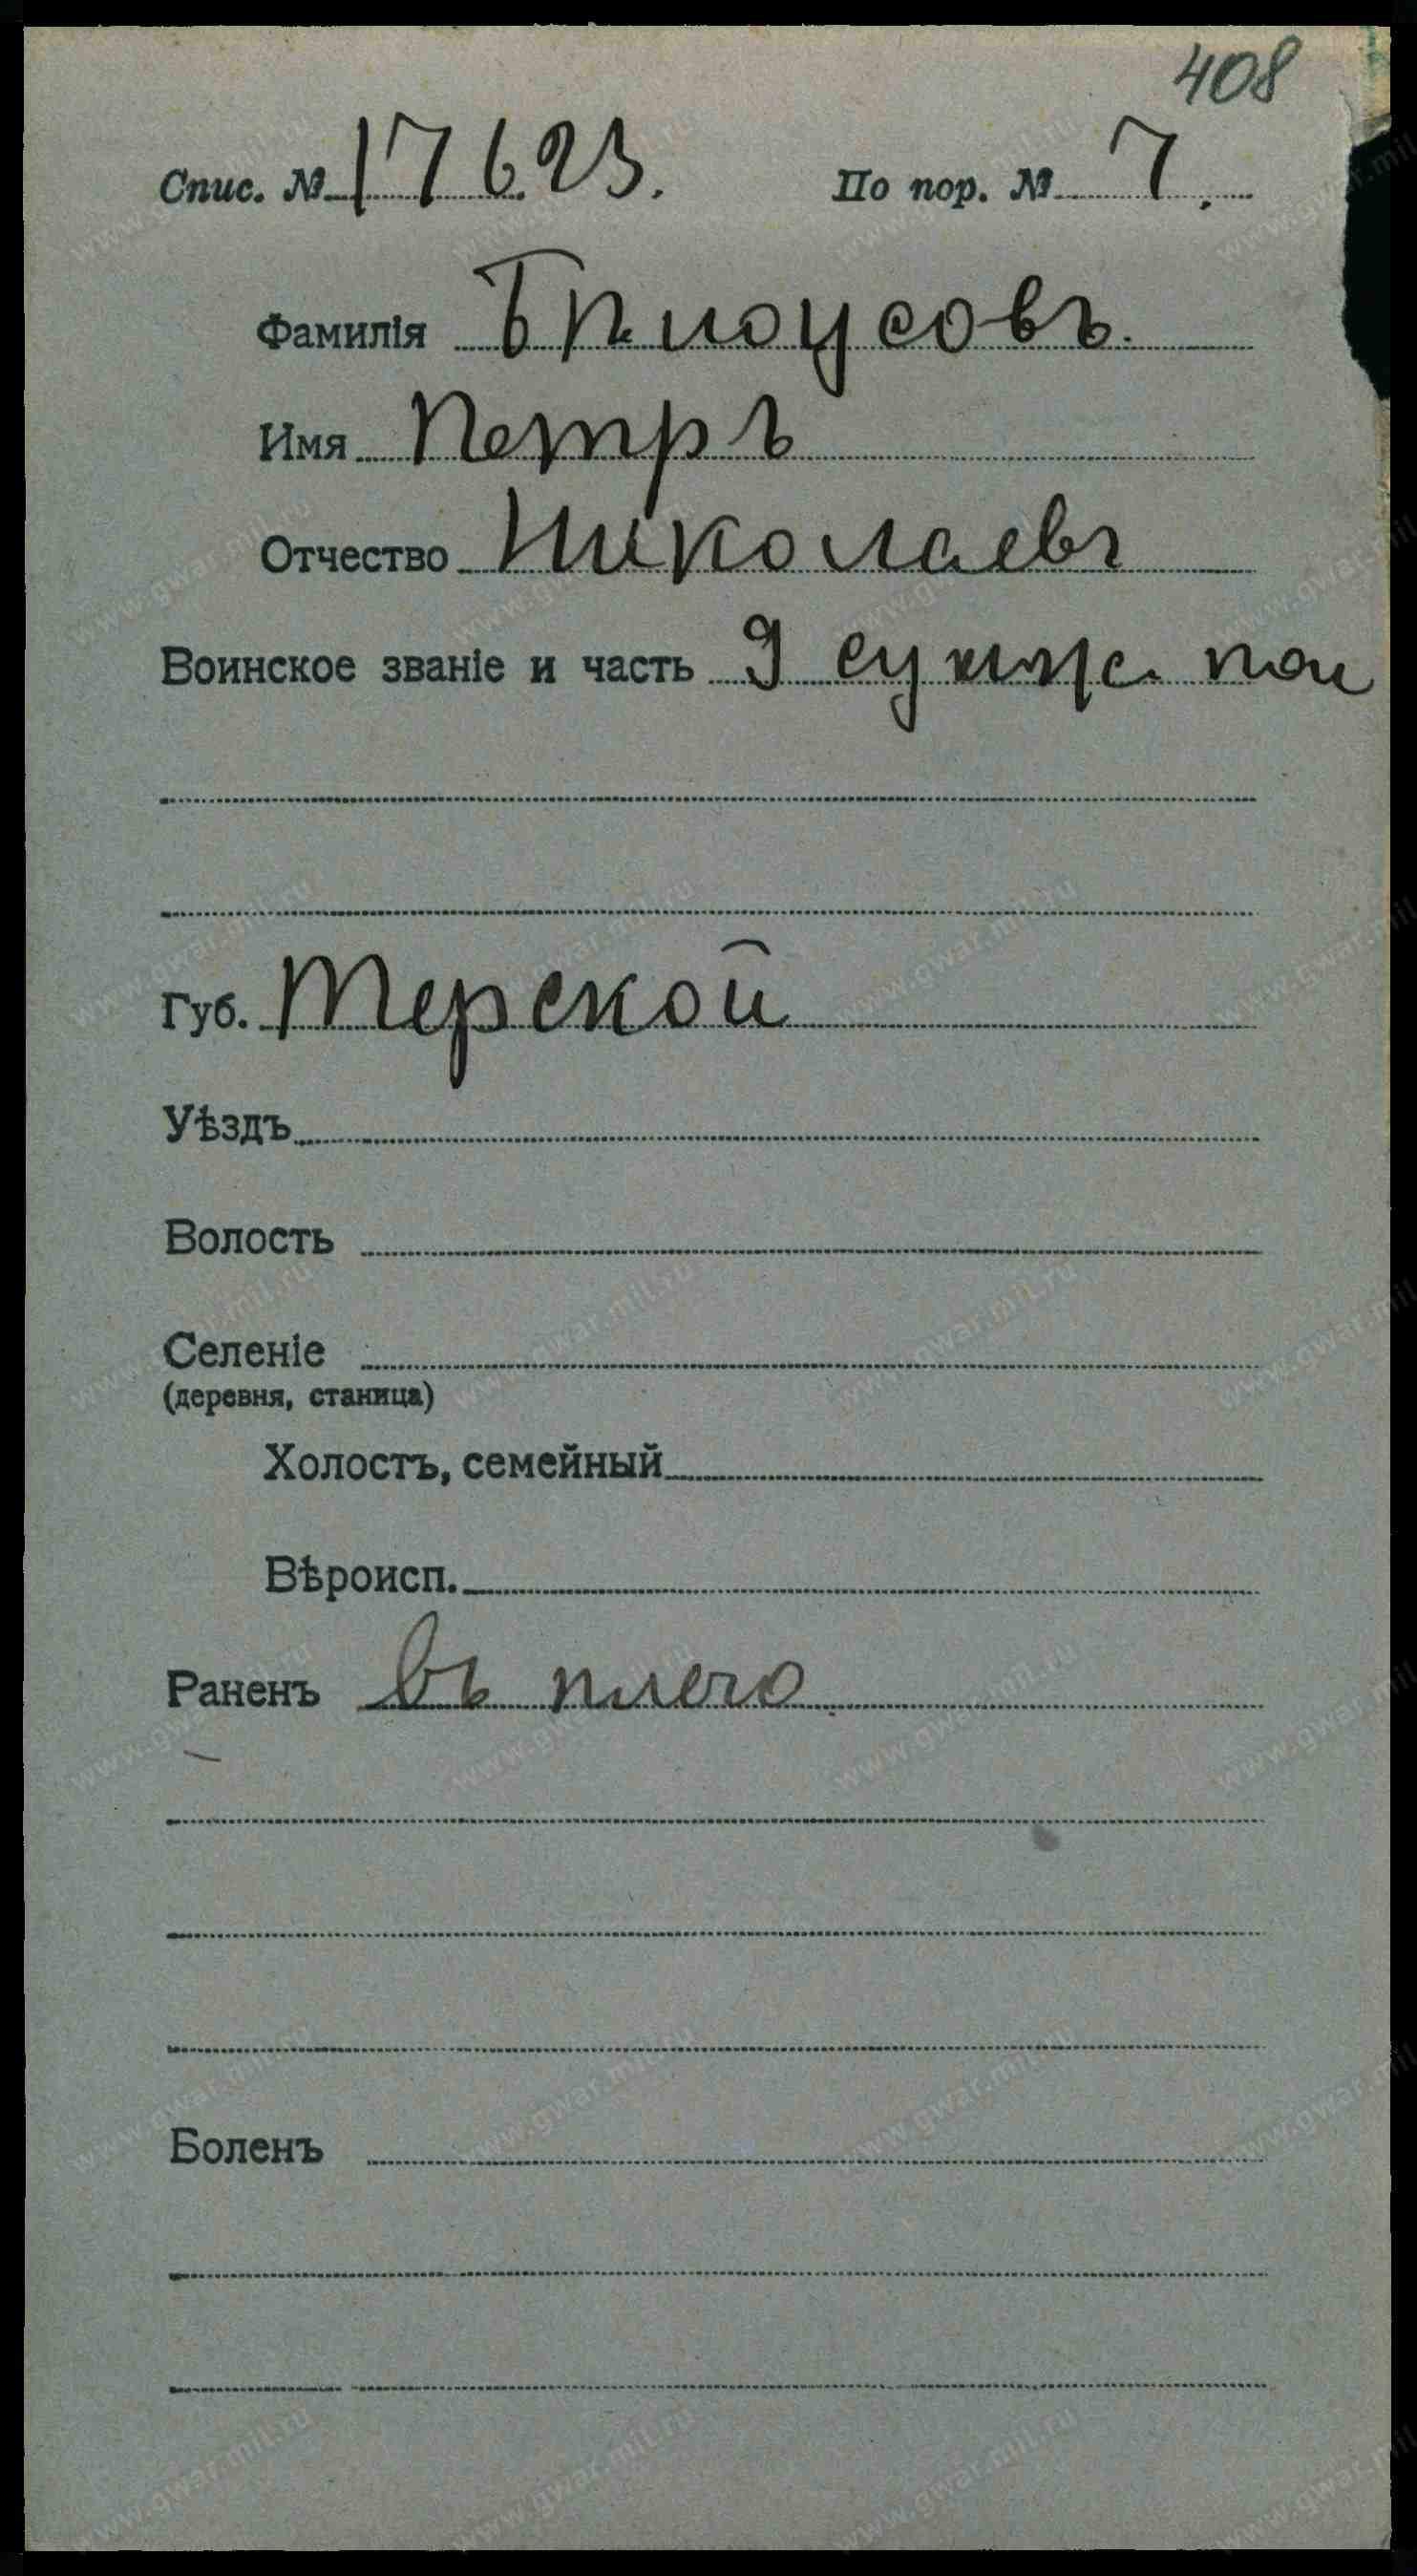 408
Спис. № 17623. По пор. № 7.
Фамилія
Имя Петръ
Отчество Николаевъ
Воинское званіе и часть 9 пол
Губ. Терской
Уѣздъ
Волость
Селеніе
(деревня, станица)
Холостъ, семейный
Вѣроисп.
Раненъ въ плечо
Боленъ